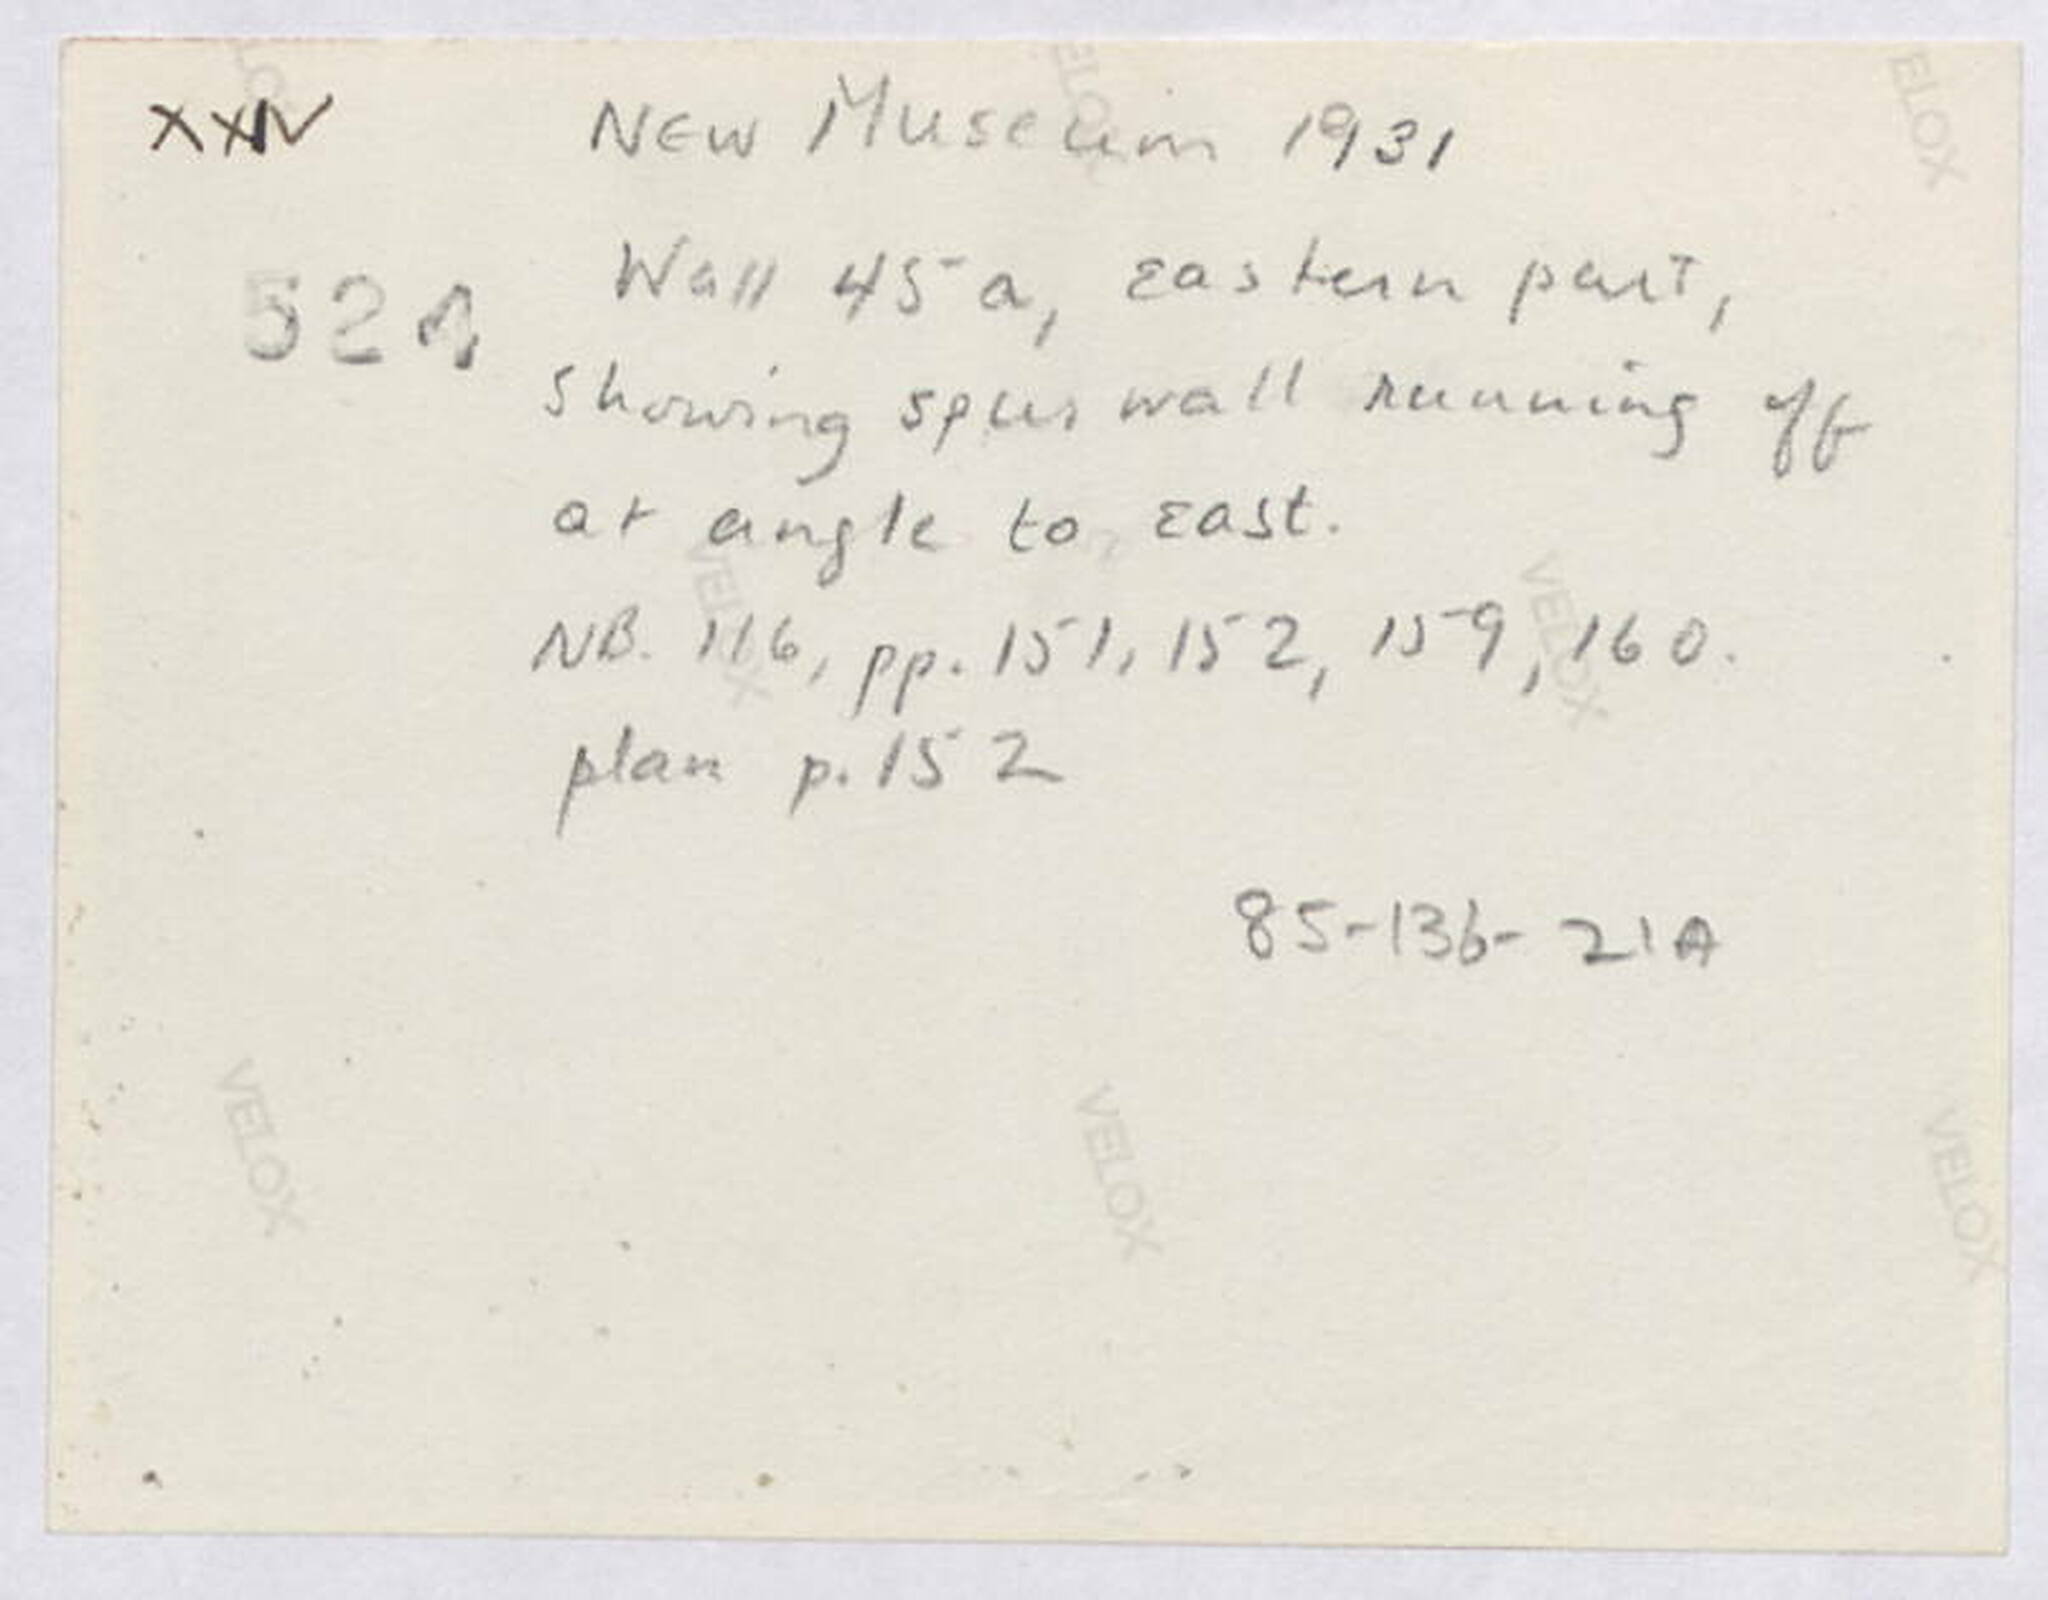 XXIV
NEW Museum 1931
Wall 45a, eastern part,
showing spur wall running off
at angle to east.
NB. 116, pp. 151, 152, 159, 160.
plan p. 152
85-136-21A
VELOX
VELOX
VELOX
VELOX
VELOX